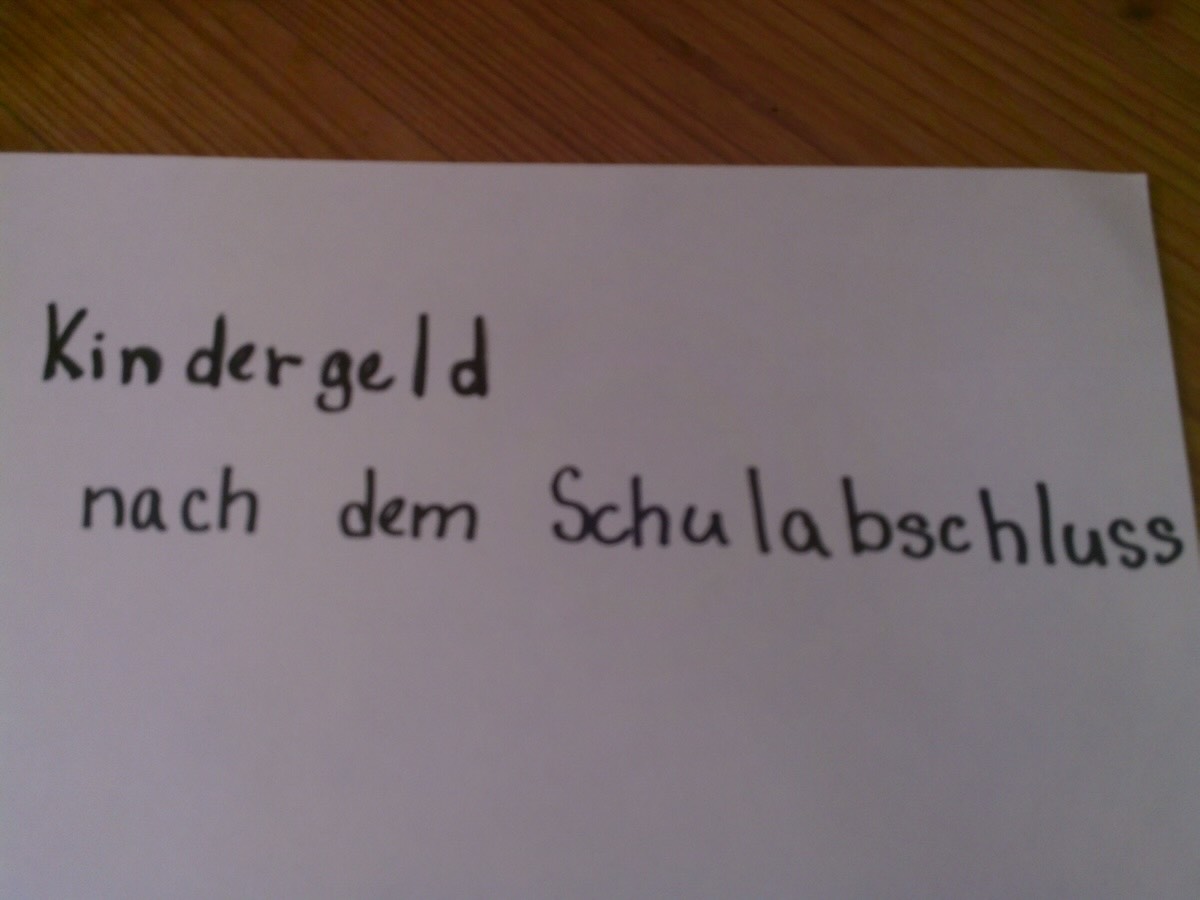 Kindergeld
nach dem Schulabschluss